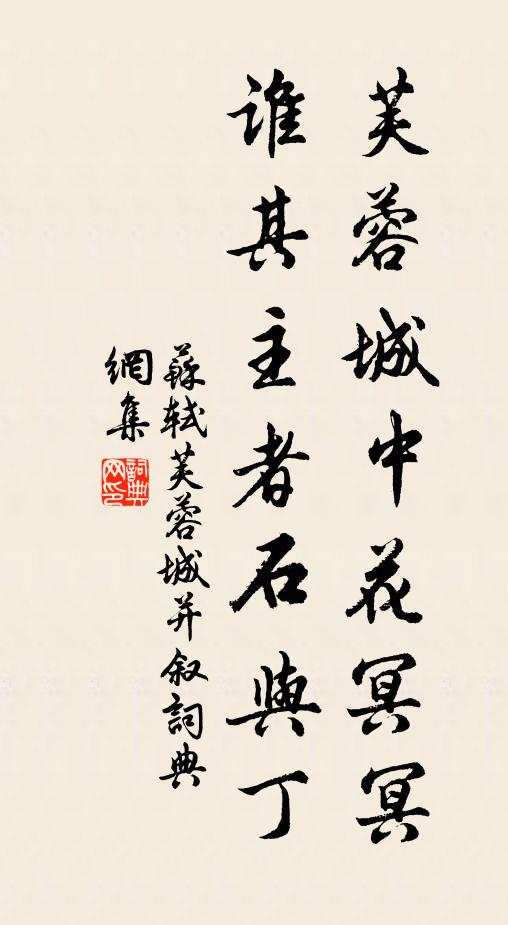 芙蓉城中花冥冥
谁其主者石與丁
蘇轼芙蓉城并叙詞典
網集
詞典网印